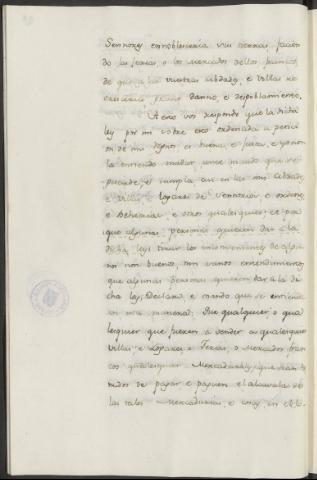 Sennores ennoblecería sus tierras, facien
do las ferias, o los Mercados dellos francos,
de que a las vuestras cibdades, e villas re
crecería, danno, e despoblamiento.
A esto vos respondo que la dicha
ley por mi sobre esto ordenada a peticion
de mis Regnos, es buena, e justa, e yo non
la entiendo mudar, antes mando que se
guarde, e cumpla asi en las mis cibdades,
e villas, e logares de Sennorios, e ordenes,
e Behetrias, e otros qualesquier; e por
que algunas personas quieren dar a la
dicha ley
non buenos, nin sanos entendimientos
que algunas personas quieren dar a la di
cha ley, Declaro, e mando que se entienda
en esta manera: Que qualquier, o qua
lesquier que fueren a vender a qualesquier
Villas, e Logares, e Ferias, o Mercados fran
cos qualesquier Mercadurias, que sean te
nidos de pagar e paguen el alcavala de
las tales Mercadurias, e cosas, en